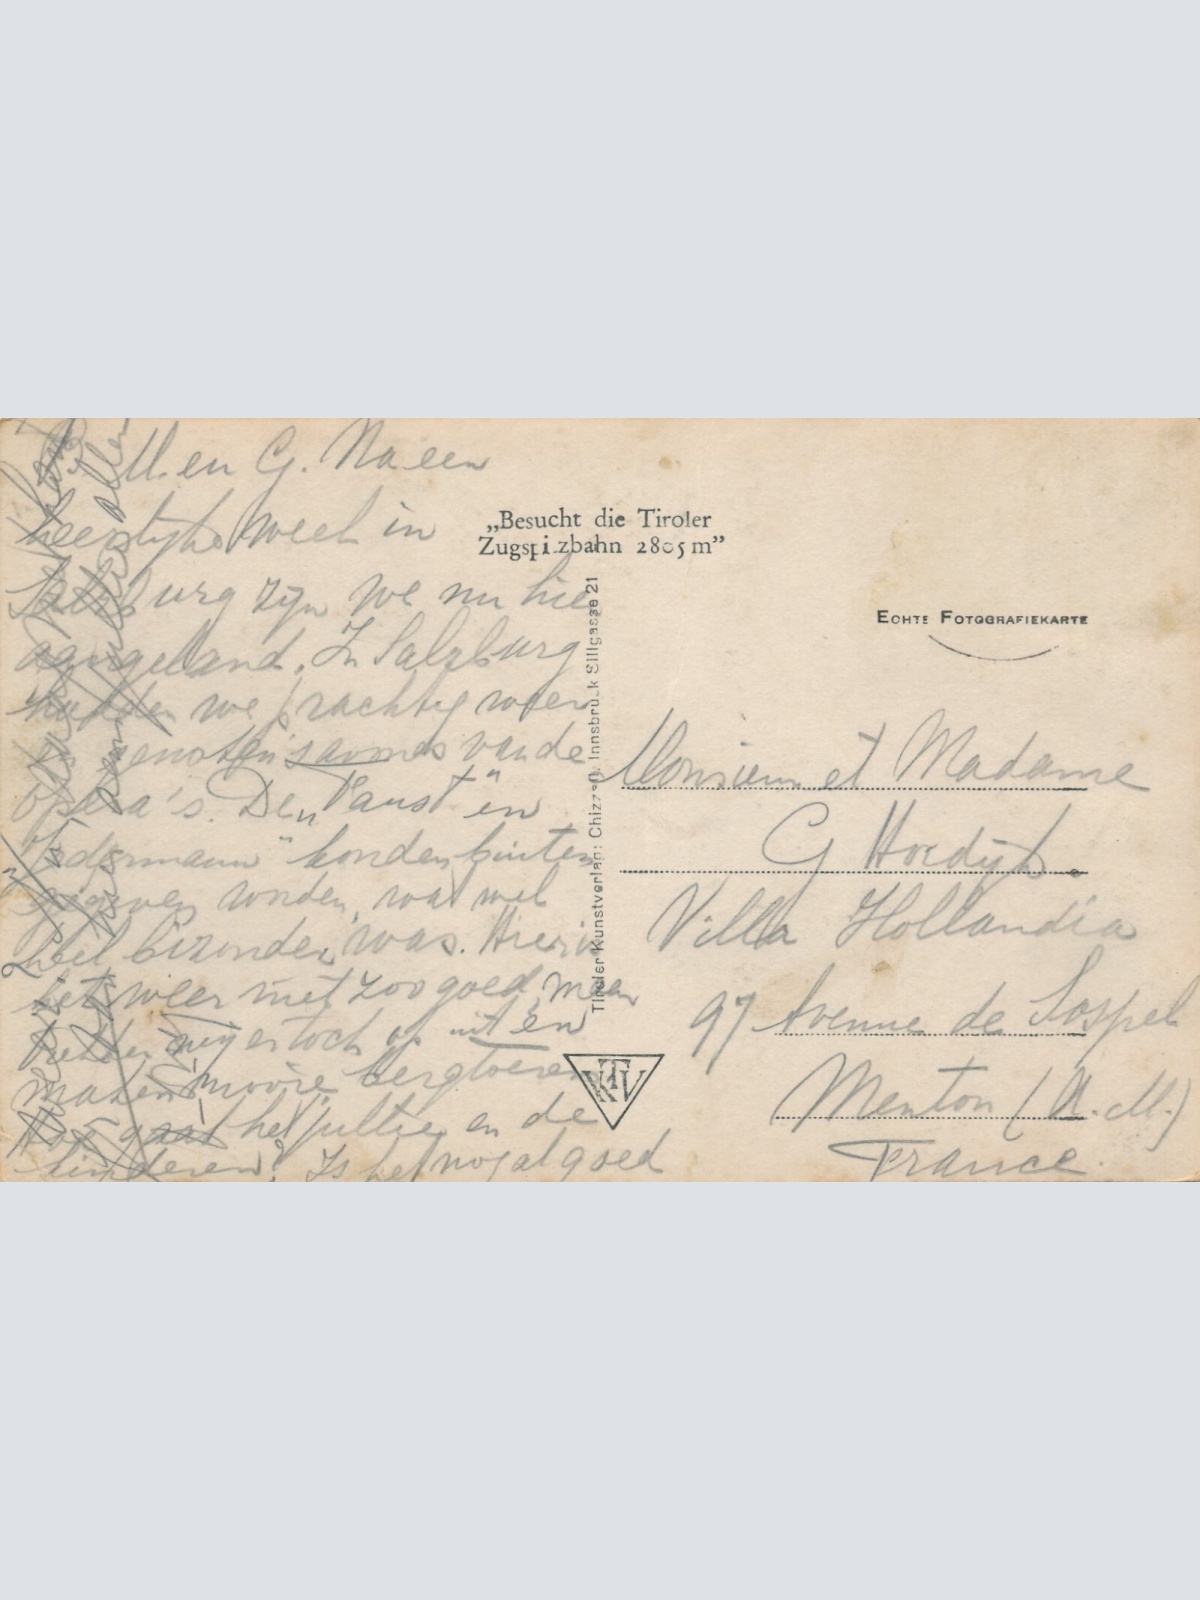 M. en G. Na een
heerlyke week in
Salzburg zyn we nu hier
aangeland. In Salzburg
hadden we prachtig weer
en genoten 's avonds van de
opera's. De „Faust" en
„Jedermann" konden buiten
gegeven worden, wat wel
heel bizonder was. Hier is
het weer niet zoo goed, maar
trekken wy er toch op uit en
maken mooie bergtoeren
Hoe gaat het jullie en de
kinderen? Is het nogal goed
„Besucht die Tiroler
Zugspitzbahn 2805 m”
Tiroler Kunstverlag: Chizzali, Innsbruck Sillgasse 21
KTV
ECHTE FOTOGRAFIEKARTE
Monsieur et Madame
G Hoedyk.
Villa Hollandia
97 Avenue de Sospel
Menton (A. M.)
France.